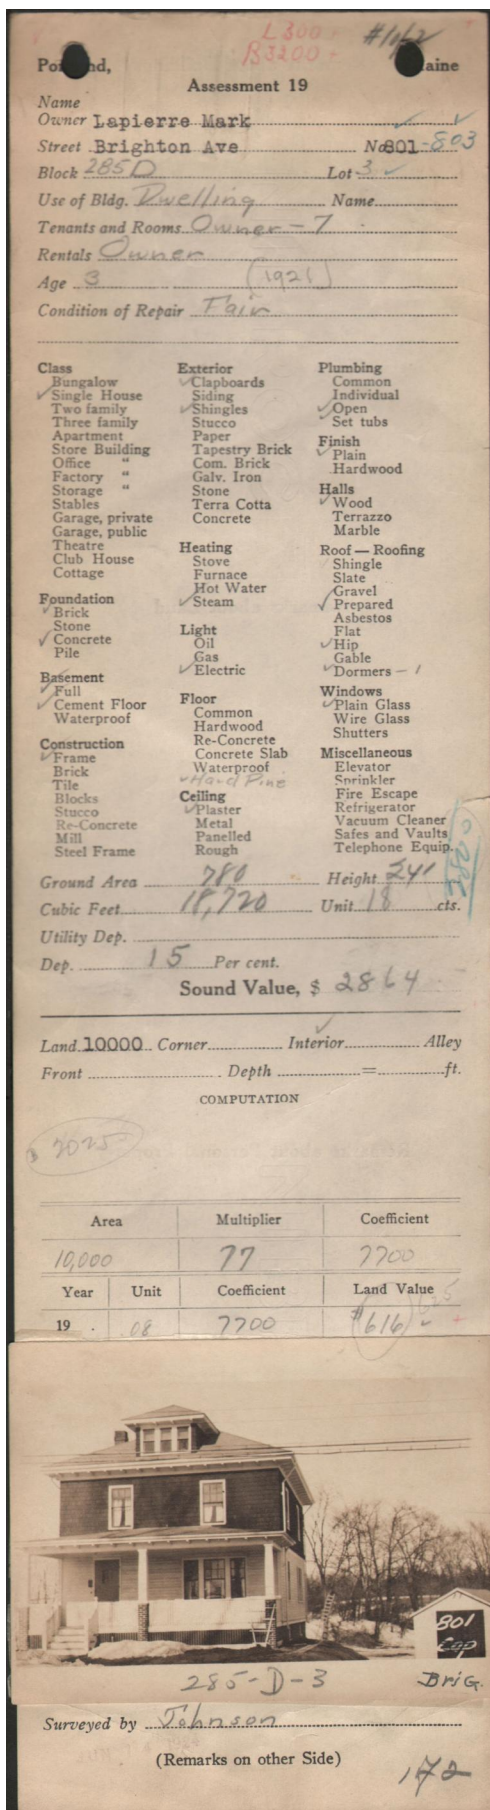 L300
B3200 -
Portland, Maine
Assessment 19
Name
Owner Lapierre Mark
Street Brighton Ave No. 801-803
Block 285D Lot 3
Use of Bldg. Dwelling Name
Tenants and Rooms Owner - 7
Rentals Owner
Age 3 (1921)
Condition of Repair Fair
Class
Bungalow
✓ Single House
Two family
Three family
Apartment
Store Building
Office "
Factory "
Storage "
Stables
Garage, private
Garage, public
Theatre
Club House
Cottage
Foundation
✓ Brick
Stone
✓ Concrete
Pile
Basement
✓ Full
✓ Cement Floor
Waterproof
Construction
✓ Frame
Brick
Tile
Blocks
Stucco
Re-Concrete
Mill
Steel Frame
Exterior
✓ Clapboards
Siding
✓ Shingles
Stucco
Paper
Tapestry Brick
Com. Brick
Galv. Iron
Stone
Terra Cotta
Concrete
Heating
Stove
Furnace
Hot Water
✓ Steam
Light
Oil
Gas
✓ Electric
Floor
Common
Hardwood
Re-Concrete
Concrete Slab
Waterproof
✓ Hard Pine
Ceiling
✓ Plaster
Metal
Panelled
Rough
Plumbing
Common
Individual
✓ Open
Set tubs
Finish
✓ Plain
Hardwood
Halls
✓ Wood
Terrazzo
Marble
Roof — Roofing
Shingle
Slate
Gravel
✓ Prepared
Asbestos
Flat
✓ Hip
Gable
✓ Dormers - 1
Windows
✓ Plain Glass
Wire Glass
Shutters
Miscellaneous
Elevator
Sprinkler
Fire Escape
Refrigerator
Vacuum Cleaner
Safes and Vaults
Telephone Equip.
Ground Area 780 Height 24'
Cubic Feet 18,720 Unit 18 cts.
Utility Dep.
Dep. 15 Per cent.
Sound Value, $ 2864
Land 10000 Corner Interior ✓ Alley
Front Depth = ft.
COMPUTATION
2025
Area Multiplier Coefficient
10,000 77 7700
Year Unit Coefficient Land Value
19 .08 7700 $616
801
Brig.
285-D-3
Surveyed by Johnson
(Remarks on other Side)
172